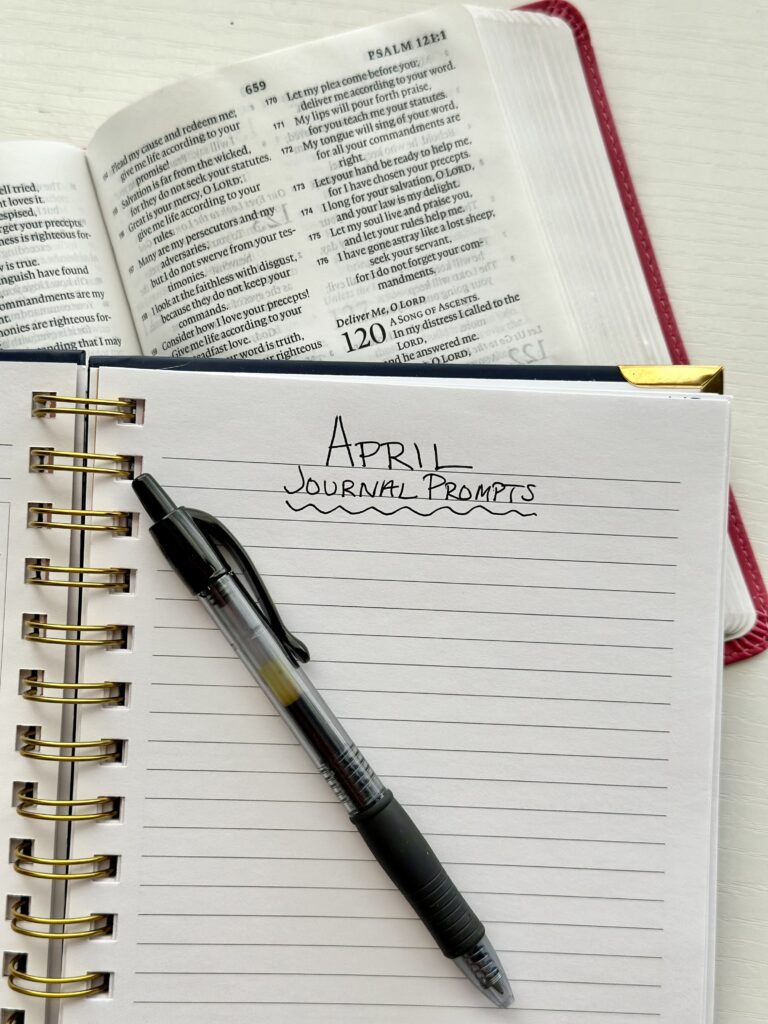 tried,
loves it.
your precepts.
is righteous for-
is true.
have found
are my
are righteous for-
that I may
659
Plead my cause and redeem me;
give me life according to your
promise!
Salvation is far from the wicked,
for they do not seek your statutes.
Great is your mercy, O LORD;
give me life according to your
rules.
Many are my persecutors and my
adversaries,
but I do not swerve from your tes-
timonies.
I look at the faithless with disgust,
because they do not keep your
commands.
Consider how I love your precepts!
Give me life according to your
steadfast love.
your word is truth,
your righteous
PSALM 121:1
170 Let my plea come before you;
deliver me according to your word.
171 My lips will pour forth praise,
for you teach me your statutes.
172 My tongue will sing of your word,
for all your commandments are
right.
173 Let your hand be ready to help me,
for I have chosen your precepts.
174 I long for your salvation, O LORD,
and your law is my delight.
175 Let my soul live and praise you,
and let your rules help me.
176 I have gone astray like a lost sheep;
seek your servant,
for I do not forget your com-
mandments.
Deliver Me, O LORD
120 A SONG OF ASCENTS.
In my distress I called to the
LORD,
and he answered me.
O LORD,
APRIL
JOURNAL PROMPTS